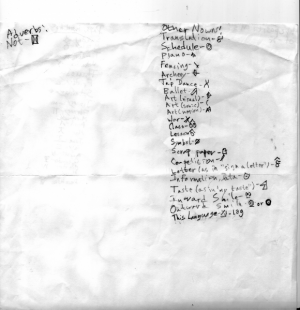 Adverbs:
Not-
Other Nouns:
Translation-
Schedule-
Piano-
Fencing-
Archery
Tap Dance-
Ballet
Art (visual)-
Art (sonic)-
Art
War-
Class-
Lesson
Symbol-
Scrap paper-
Competition-
Letter (as in "sign a letter")-
Information, Data-
Taste (as in "my taste")-
Inward Smile-
Outward Smile- or
This Language-